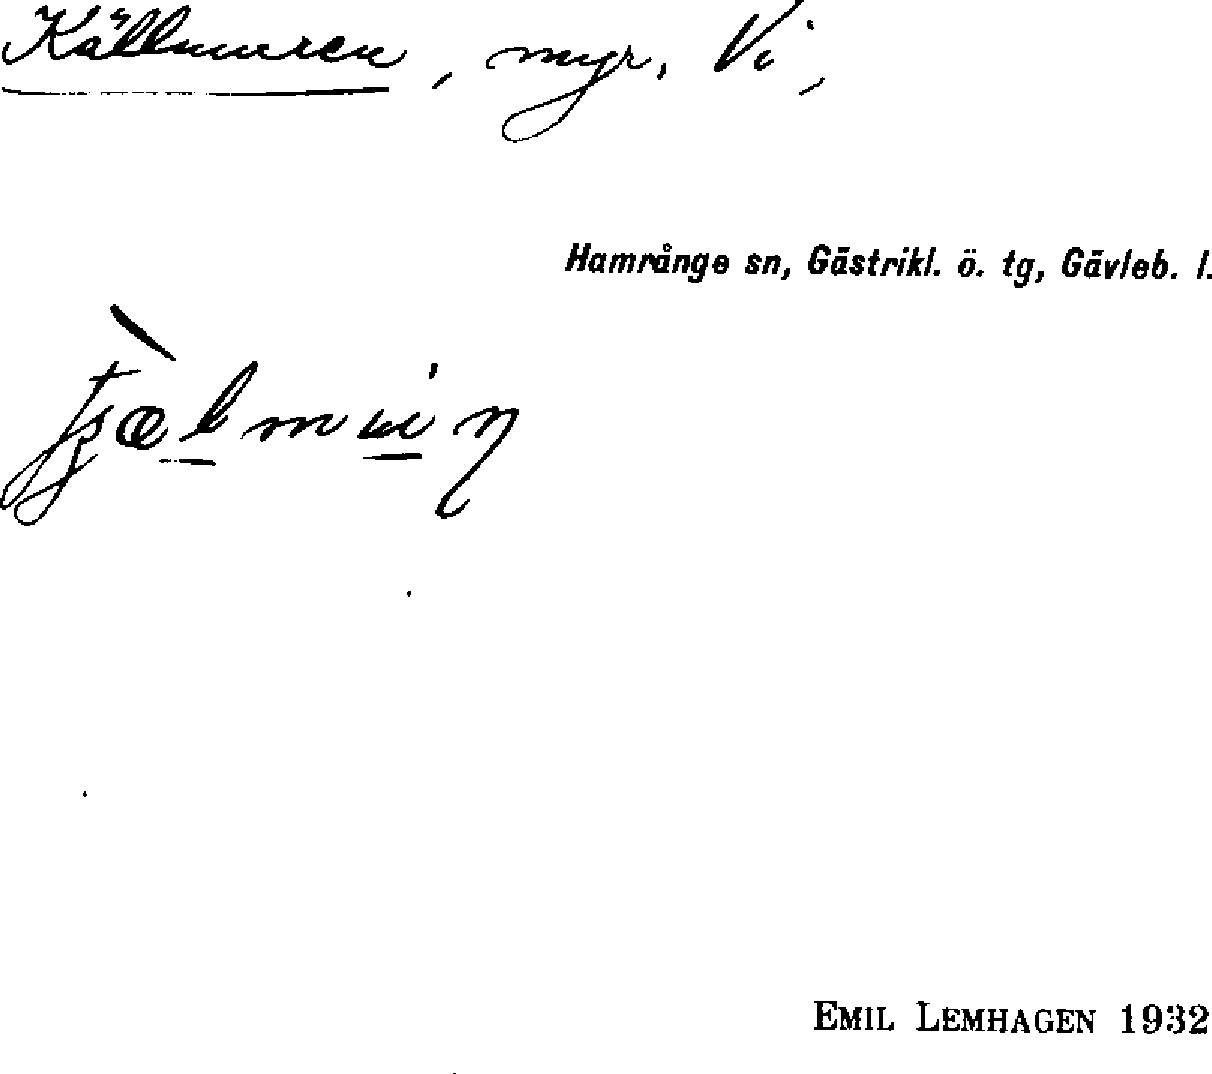 Källmuren, myr. Vi,
Hamrånge sn, Gästrikl. ö. tg, Gävleb. l.
EMIL LEMHAGEN 1932